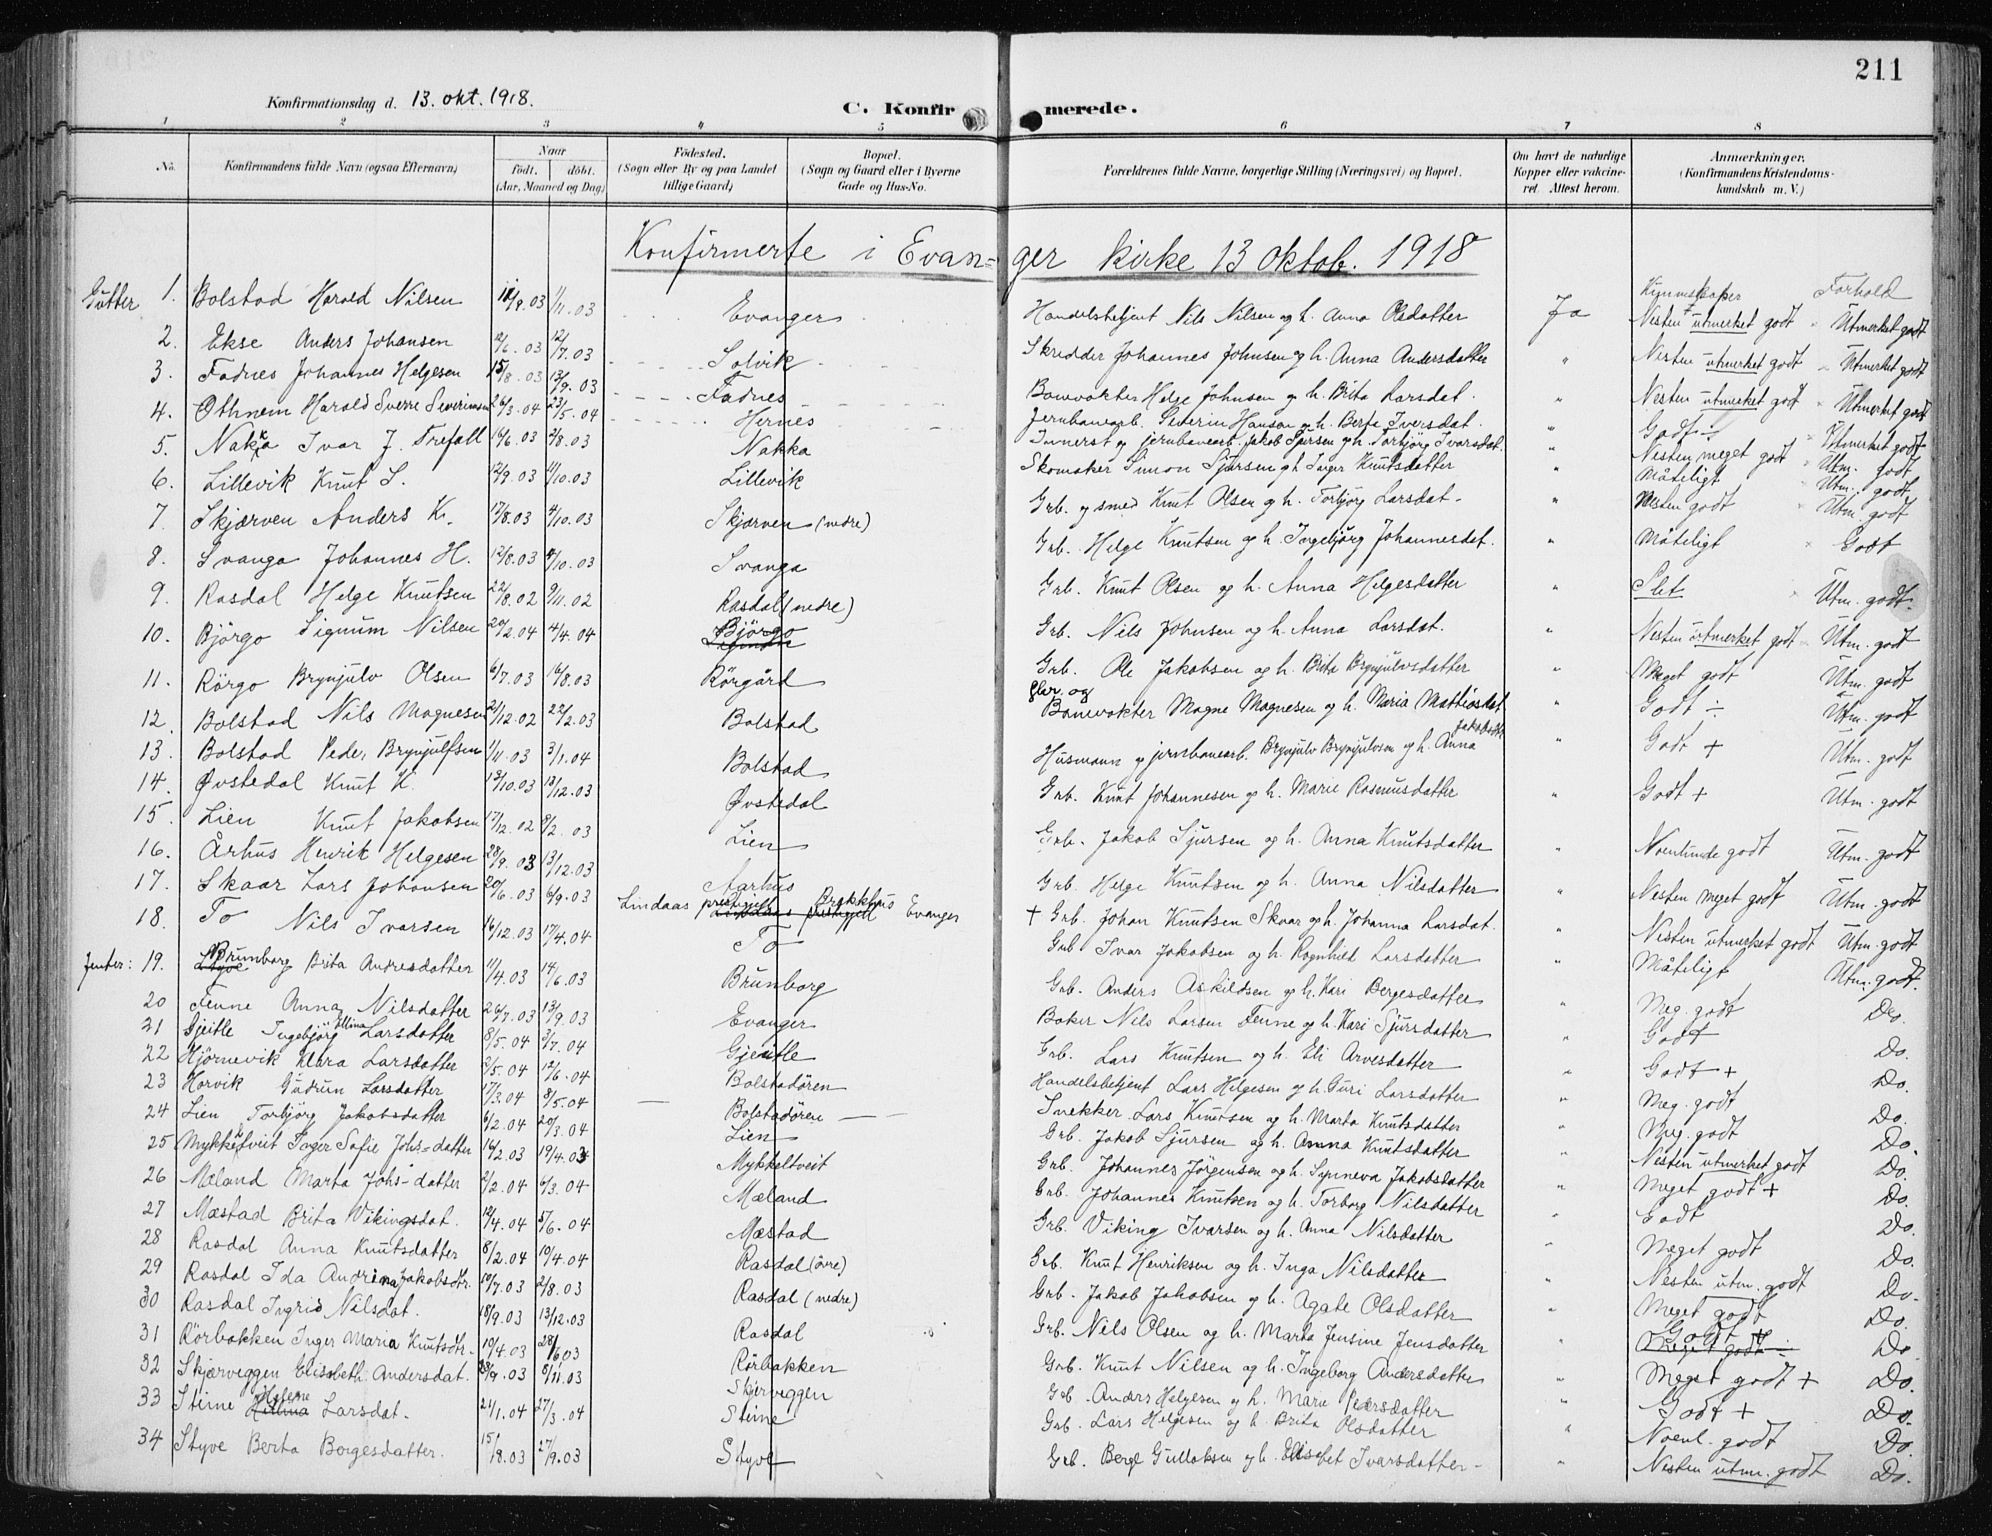 211
Konfirmationsdag d. 13. okt. 1918.
C. Konfirmerede.
1 2 3 4 5 6 7 8
No. Konfirmandens fulde Navn (ogsaa Efternavn) Naar født. døbt. (Aar, Maaned og Dag) Fødested. (Sogn eller By og paa Landet tillige Gaard) Bopæl. (Sogn og Gaard eller i Byerne Gade og Hus-No. Forældrenes fulde Navne, borgerlige Stilling (Næringsvei) og Bopæl. Om havt de naturlige Kopper eller vakcineret. Attest herom. Anmærkninger. (Konfirmandens Kristendomskundskab m. V.)
Konfirmerte i Evanger kirke 13 oktob. 1918
Kunnskaper Forhold
Gutter 1. Bolstad Harald Nilsen 11/9.03 1/11.03 Evanger Handelsbetjent Nils Nilsen og h. Anna Olsdatter Ja Nesten utmerket godt Utmerket godt
2. Ekse Anders Johansen 12/6.03 12/7.03 Solvik Skredder Johannes Johnsen og h. Anna Andersdatter " Nesten utmerket godt Utmerket godt
3. Fadnes Johannes Helgesen 15/8.03 13/9.03 Fadnes Banevokter Helge Johnsen og h. Brita Larsdat. " Nesten utmerket godt Utmerket godt
4. Othnem Harald Sverre Severinsen 26/3.04 23/5.04 Hernes Jernbanearb. Severin Hanson og h. Berta Iversdat. " Godt ÷ Utmerket godt
5. Nakka Ivar J. Trefall 16/6.03 2/8.03 Nakka Innerst og jernbanearb. Jakob Sjursen og h. Torbjörg Ivarsdat. " Nesten meget godt Utm. godt
6. Lillevik Knut S. 12/9.03 11/10.03 Lillevik Skomaker Simon Sjursen og h. Inger Knutsdatter " Måteligt Utm. godt
7. Skjærven Anders K. 17/8.03 4/10.03 Skjærven (nedre) Grb. og smed Knut Olsen og h. Torbjörg Larsdat. " Nesten godt Utm. godt
8. Svanga Johannes H. 12/8.03 4/10.03 Svanga Grb. Helge Knutsen og h. Ingebjörg Johannesdat. " Måteligt Godt
9. Rasdal Helge Knutsen 22/8.02 9/11.02 Rasdal (nedre) Grb. Knut Olsen og h. Anna Helgesdatter " Slet Utm. godt.
10. Björgo Signum Nilsen 20/2.04 4/4.04 Björgo Grb. Nils Johnsen og h. Anna Larsdat. " Nesten utmerket godt Utm. godt
11. Rörgo Brynjulv Olsen 6/7.03 16/8.03 Rörgård Grb. Ole Jakobsen og h. Brita Brynjulvsdatter " Meget godt Utm. godt
12. Bolstad Nils Magnesen 21/12.02 22/2.03 Bolstad og Banevokter Magne Magnesen og h. Maria Mattiasdat. " Godt ÷ Utm. godt
13. Bolstad Peder Brynjulfsen 1/11.03 3/1.04 Bolstad Husmann og jernbanearb. Brynjulv Brynjulvsen og h. Anna " Godt + Utm. godt
14. Øvstedal Knut K. 13/10.03 13/12.03 Øvstedal Grb. Knut Johannesen og h. Marie Rasmusdatter " Godt + Utm. godt
15. Lien Knut Jakobsen 17/12.02 8/2.03 Lien Grb. Jakob Sjursen og h. Anna Knutsdatter " Noenlunde godt Utm. godt
16. Århus Henrik Helgesen 28/9.03 13/12.03 Aarhus Grb. Helge Knutsen og h. Anna Nilsdatter " Nesten meget godt Utm. godt
17. Skaar Lars Johansen 20/6.03 6/9.03 Lindaas prestegjeld Brakkhus Evanger + Grb. Johan Knutsen Skaar og h. Johanna Larsdat. " Nesten utmerket godt Utm. godt
18. To Nils Ivarsen 16/12.03 17/4.04 To Grb Ivar Jakobsen og h. Ragnhild Larsdatter " Måteligt Utm. godt.
Jenter: 19. Brunborg Brita Andresdatter 11/4.03 14/6.03 Brunborg Grb. Anders Askildsen og h. Kari Bergesdatter " Meg. godt Do.
20 Fenne Anna Nilsdatter 26/7.03 13/9.03 Evanger Baker Nils Larsen Fenne og h. Kari Sjursdatter " Godt Do.
21 Gjeitle Ingebjörg Ellina Larsdatter 8/5.04 3/7.04 Gjeitle Grb. Lars Knutsen og h. Eli Arvesdatter " Godt + Do.
22 Hjörnevik Klara Larsdatter 3/5.04 12/6.04 Bolstadören Handelsbetjent Lars Helgesen og h. Guri Larsdatter " Meg. godt Do.
23 Horvik Gudrun Larsdatter 17/3.04 8/5.04 Bolstadören Snekker Lars Knutsen og h. Marta Knutsdatter " Meg. godt Do.
24 Lien Torbjörg Jakobsdatter 6/2.04 20/3.04 Lien Grb. Jakob Sjursen og h. Anna Knutsdatter " Nesten utmerket godt Do.
25 Mykkeltveit Inger Sofie Johs-datter 16/2.03 19/4.03 Mykkeltveit Grb. Johannes Jörgensen og h. Synneva Jakobsdatter " Meget godt + Do.
26 Mæland Marta Johs-datter 2/2.04 6/3.04 Mæland Grb. Johannes Knutsen og h. Torborg Nilsdatter " Godt Do.
27 Mæstad Brita Vikingsdat. 12/4.04 5/6.04 Mæstad Grb. Viking Ivarsen og h. Anna Nilsdatter " Meget godt Do.
28 Rasdal Anna Knutsdatter 8/2.04 10/4.04 Rasdal (övre) Grb. Knut Henriksen og h. Inga Nilsdatter " Nesten utm. godt Do.
29 Rasdal Ida Andrina Jakobsdtr. 10/7.03 2/8.03 Rasdal (nedre) Grb. Jakob Jakobsen og h. Agate Olsdatter " Meget godt Do.
30 Rasdal Ingrid Nilsdat. 18/9.03 13/12.03 Rasdal Grb. Nils Olsen og h. Marta Jensine Jensdatter " Godt + Do
31 Rörbakken Inger Maria Knutsdtr. 10/4.03 28/6.03 Rörbakken Grb. Knut Nilsen og h. Ingeborg Andersdatter " Meget godt + Do.
32 Skjærveggen Elisabeth Andersdat. 23/9.03 8/11.03 Skjerveggen Grb. Anders Helgesen og h. Marie Pedersdatter " Godt + Do.
33 Steine Helene Larsdat. 21/1.04 27/3.04 Steine Grb. Lars Helgesen og h. Brita Olsdatter " Noenl. godt Do.
34 Styve Berta Bergesdatter. 15/8.03 27/9.03 Styve Grb. Berge Gulleksen og h. Elisabet Ivarsdatter " Nesten utm. godt Do.